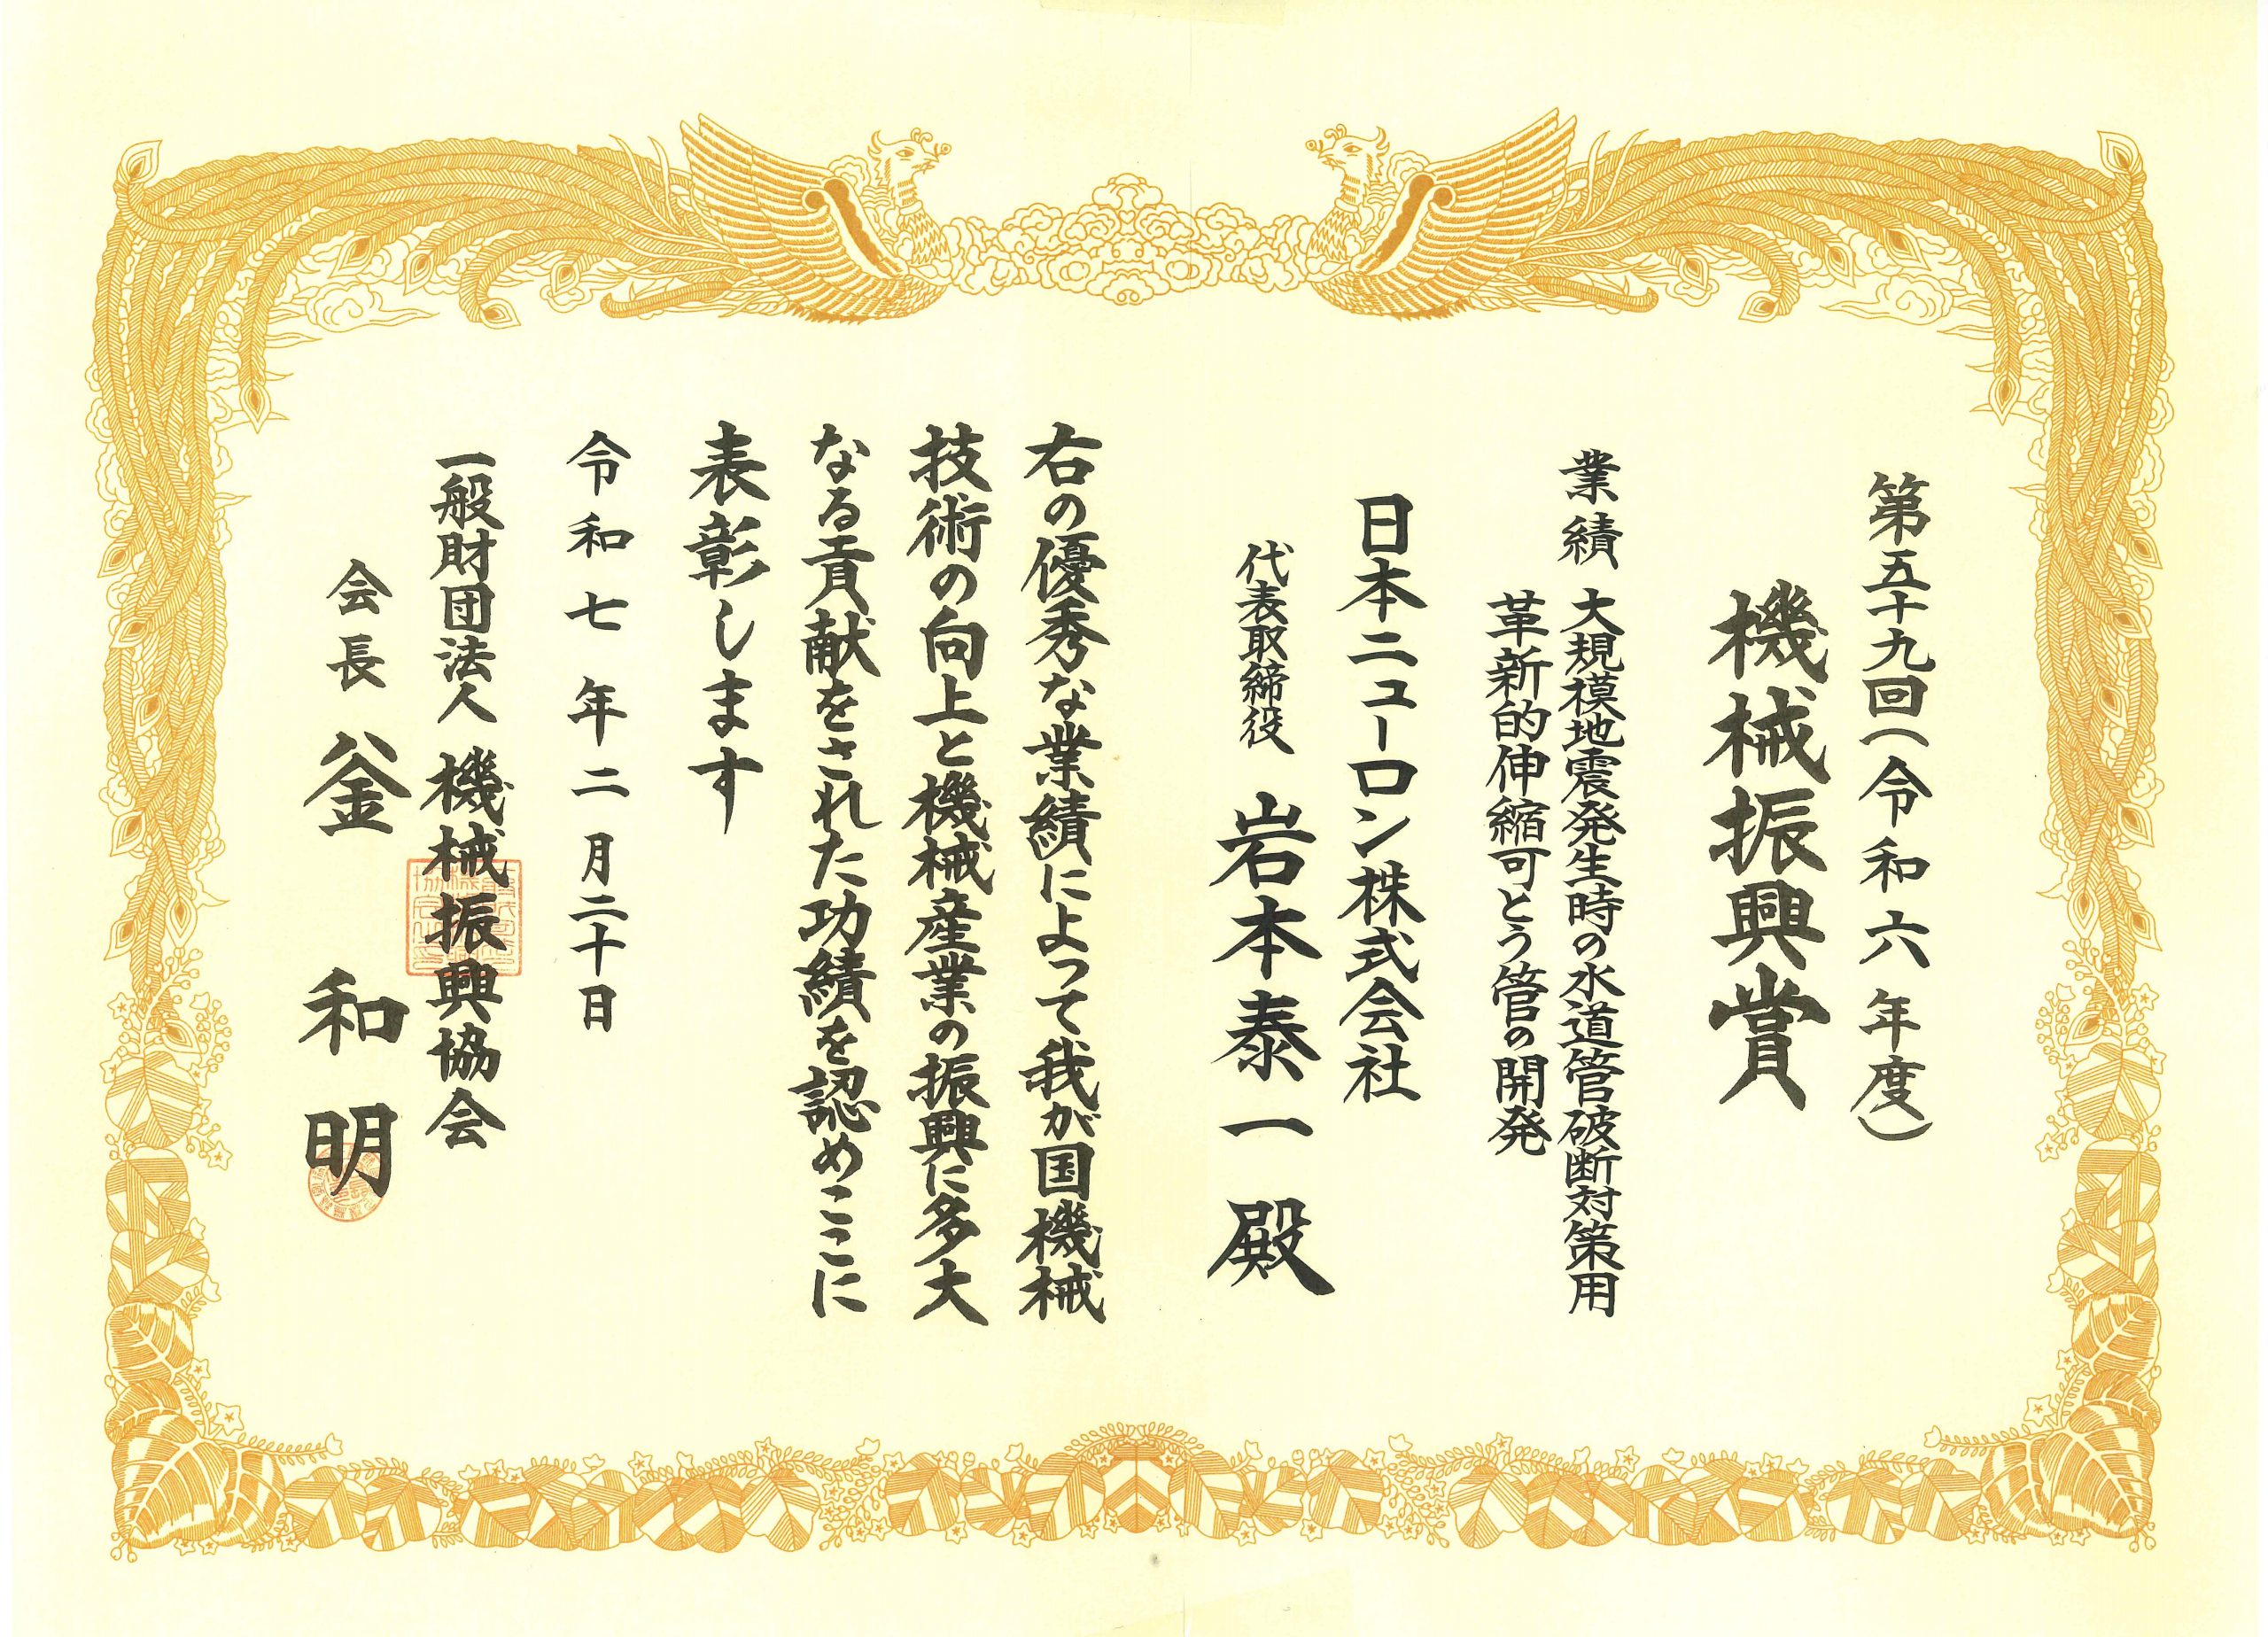 第五十九回(令和六年度)
機械振興賞
業績 大規模地震発生時の水道管破断対策用
革新的伸縮可とう管の開発
日本ニューロン株式会社
代表取締役 岩本泰一殿
右の優秀な業績によって我が国機械
技術の向上と機械産業の振興に多大
なる貢献をされた功績を認めここに
表彰します
令和七年二月二十日
一般財団法人 機械振興協会
会長 釜和明